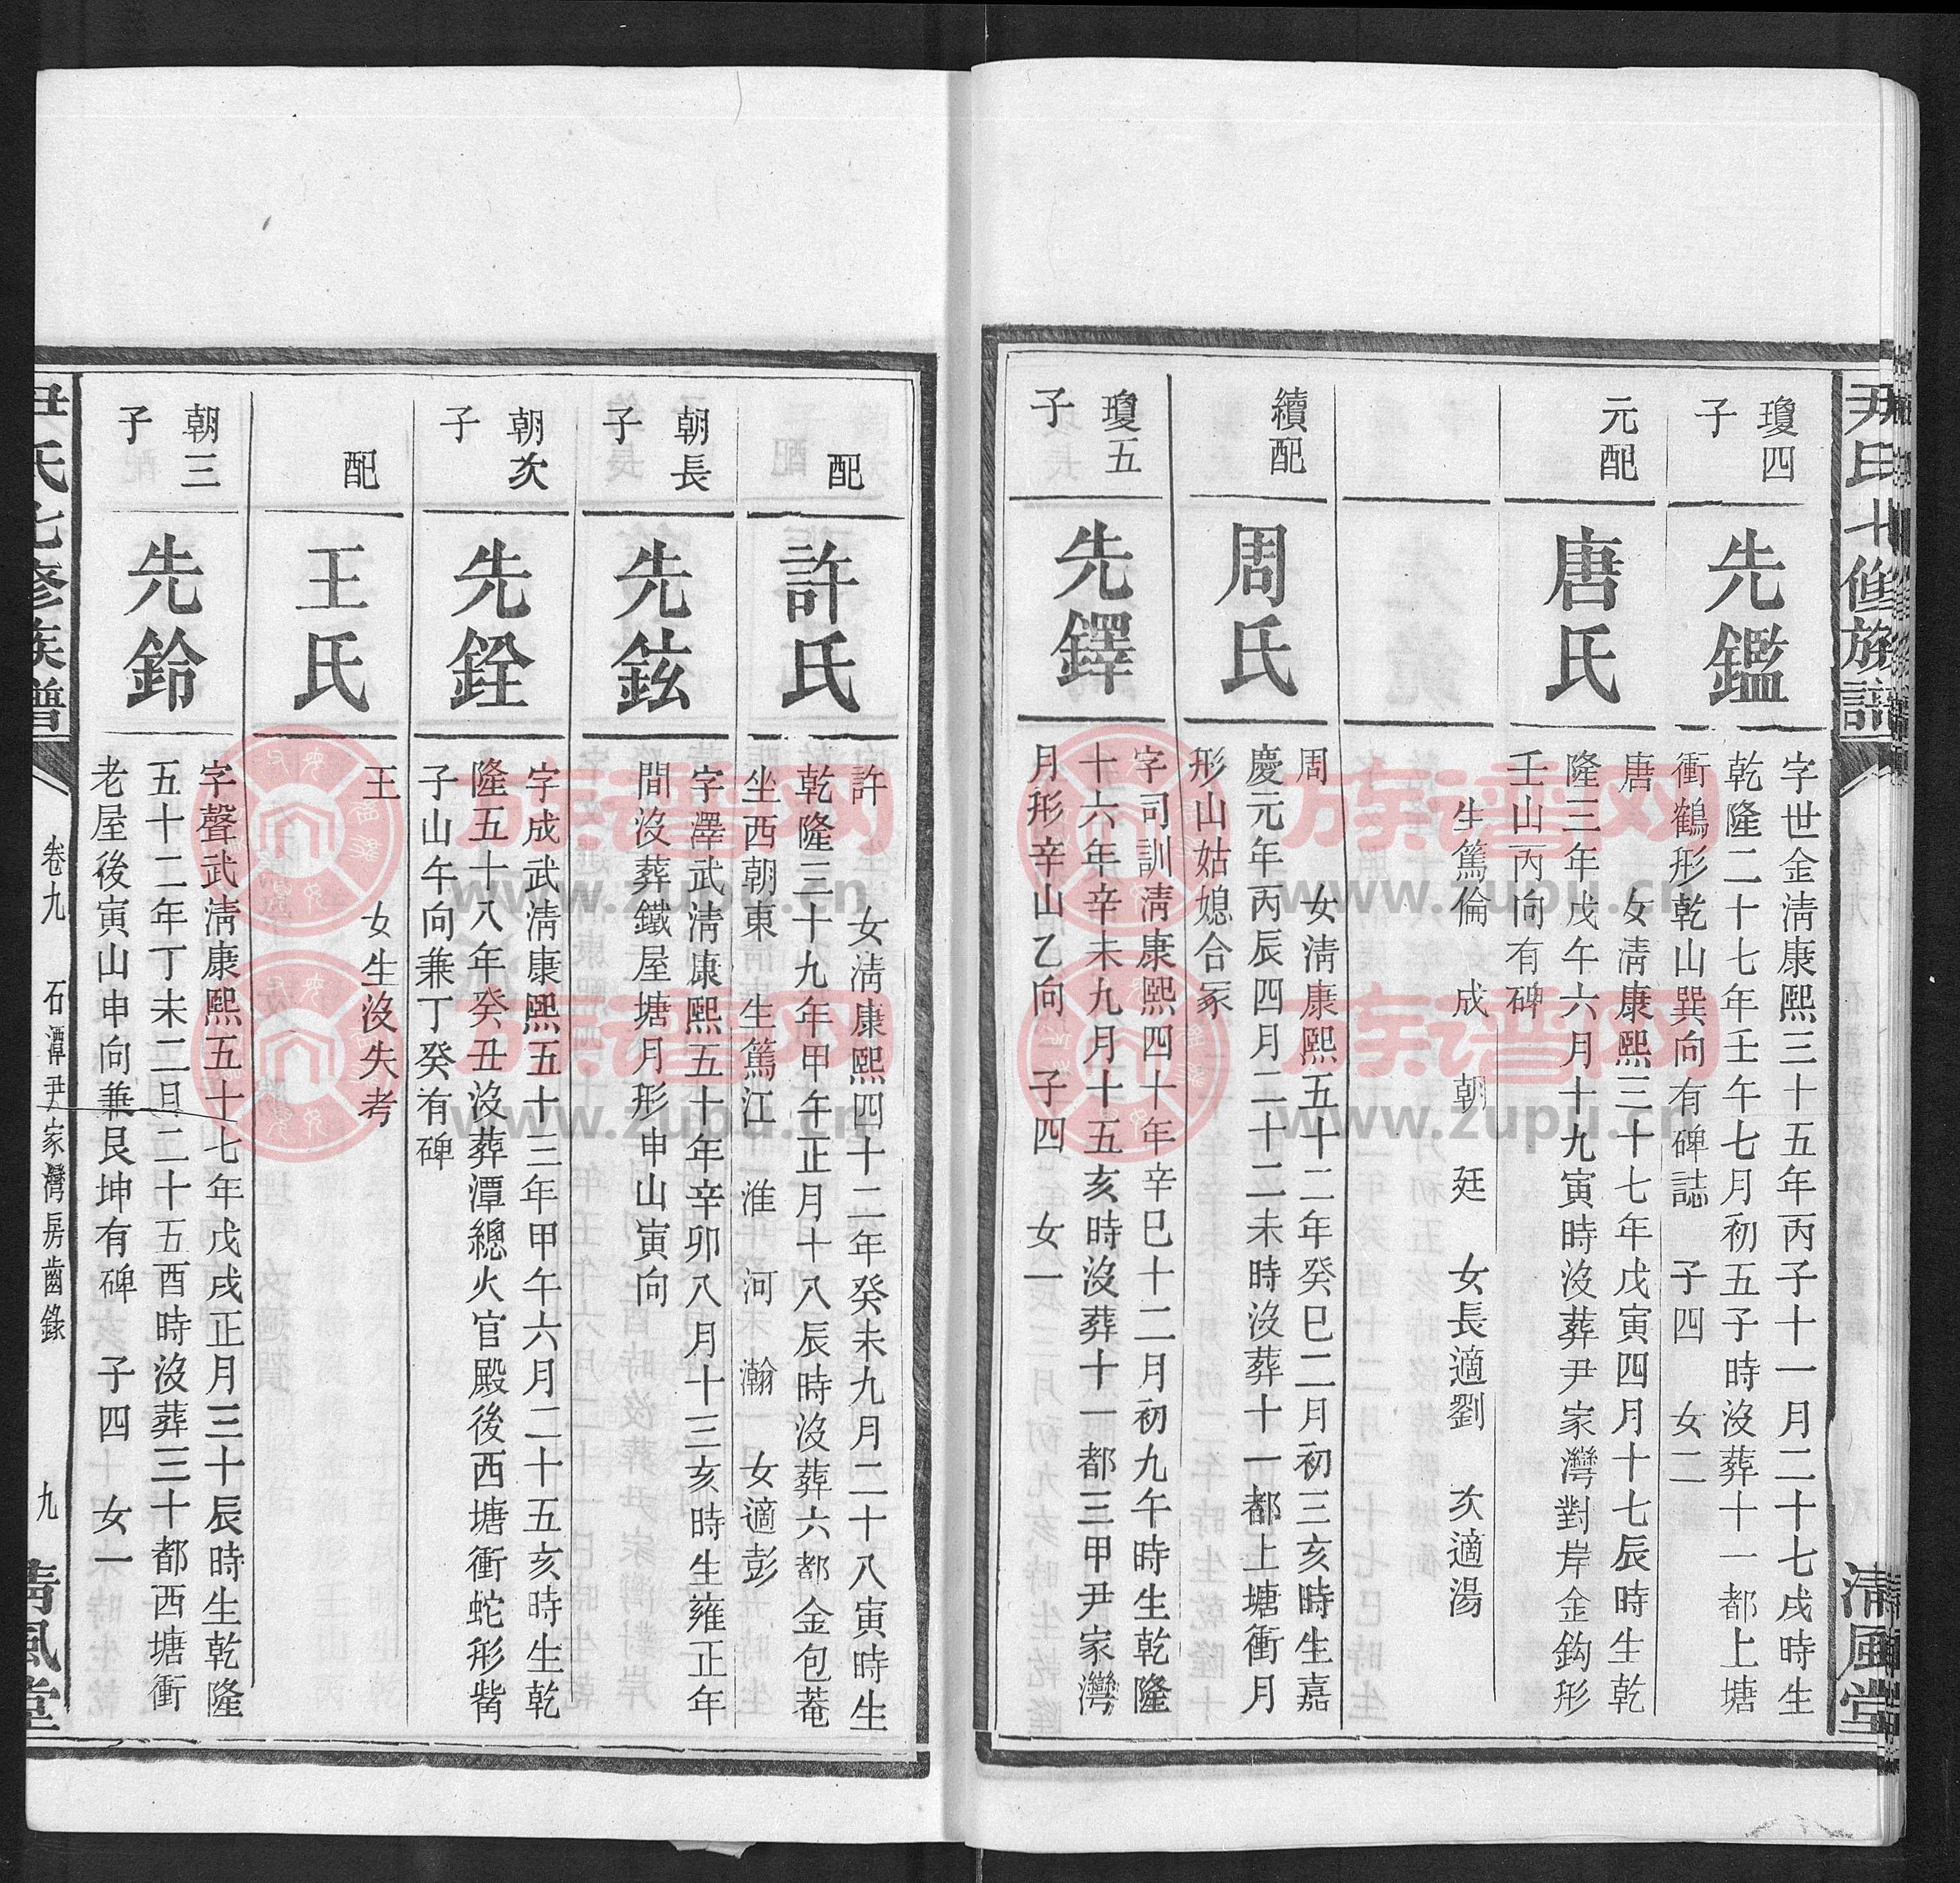 尹氏七修族譜
清風堂
瓊四
子
先鑑
字世金清康熙三十五年丙子十一月二十七戌時生
乾隆二十七年壬午七月初五子時沒葬十一都上塘
衝鶴形乾山巽向有碑誌 子四 女二
元配
唐氏
唐 女清康熙三十七年戊寅四月十七辰時生乾
隆三年戊午六月十九寅時沒葬尹家灣對岸金鈎形
壬山丙向有碑
生篤倫 成 朝 廷 女長適劉 次適湯
續配
周氏
周 女清康熙五十二年癸巳二月初三亥時生嘉
慶元年丙辰四月二十二未時沒葬十一都上塘衝月
形山姑媳合冢
瓊五
子
先鐸
字司訓清康熙四十年辛巳十二月初九午時生乾隆
十六年辛未九月十五亥時沒葬十一都三甲尹家灣
月形辛山乙向 子四 女一
配
許氏
許 女清康熙四十二年癸未九月二十八寅時生
乾隆三十九年甲午正月十八辰時沒葬六都金包菴
坐西朝東 生篤江 淮 河 瀚 女適彭
朝長
子
先鉉
字澤武清康熙五十年辛卯八月十三亥時生雍正年
間沒葬鐵屋塘月形申山寅向
朝次
子
先銓
字成武清康熙五十三年甲午六月二十五亥時生乾
隆五十八年癸丑沒葬潭總火官殿後西塘衝蛇形觜
子山午向兼丁癸有碑
配
王氏
王 女生沒失考
朝三
子
先鈴
字聲武清康熙五十七年戊戌正月三十辰時生乾隆
五十二年丁未二月二十五酉時沒葬三十都西塘衝
老屋後寅山申向兼艮坤有碑 子四 女一
尹氏七修族譜
卷九 石潭尹家灣房齒錄
九
清風堂
族譜网
www.zupu.cn
族譜网
www.zupu.cn
族譜网
www.zupu.cn
族譜网
www.zupu.cn